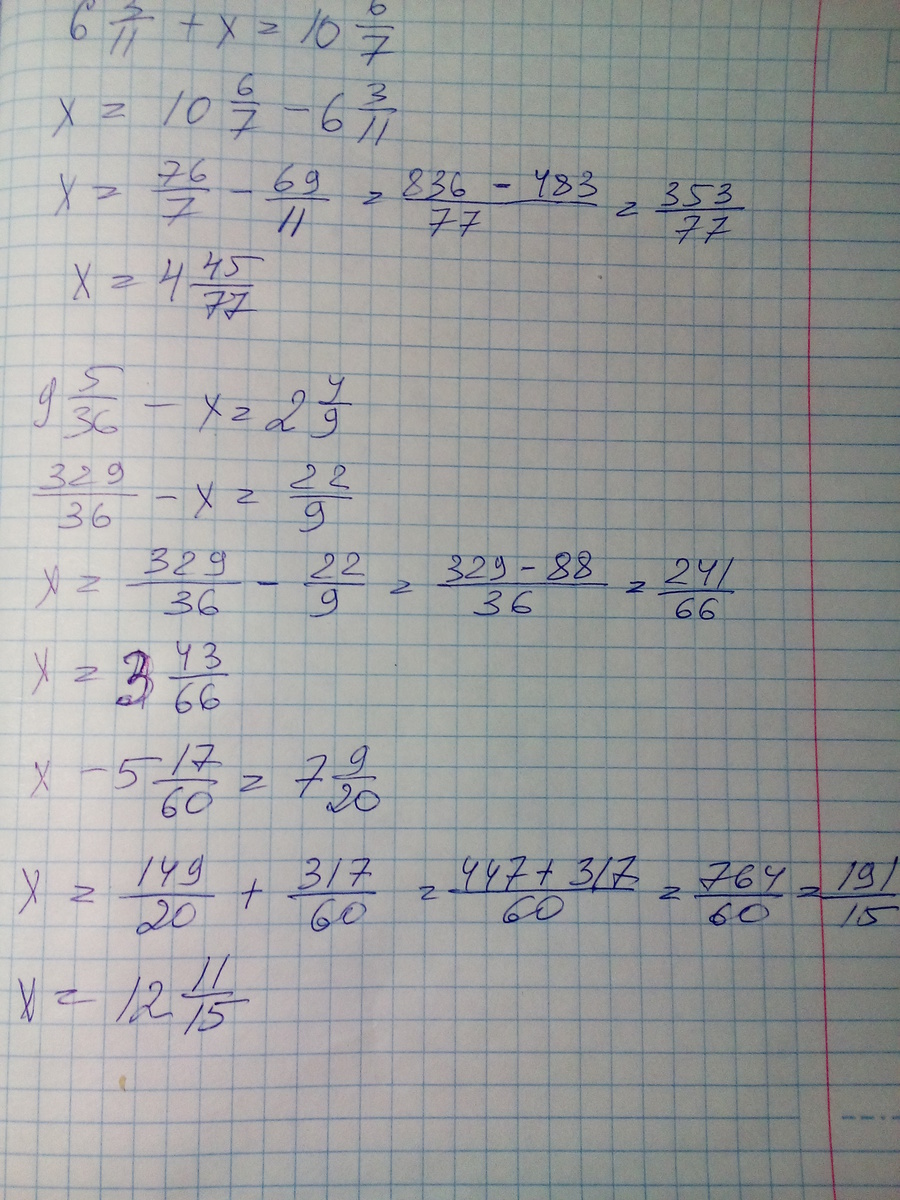 6 3/11 + x = 10 6/7
x = 10 6/7 - 6 3/11
x = 76/7 - 69/11 = (836 - 483)/77 = 353/77
x = 4 45/77
9 5/36 - x = 2 4/9
329/36 - x = 22/9
x = 329/36 - 22/9 = (329 - 88)/36 = 241/66
x = 3 43/66
x - 5 17/60 = 7 9/20
x = 149/20 + 317/60 = (447 + 317)/60 = 764/60 = 191/15
x = 12 11/15